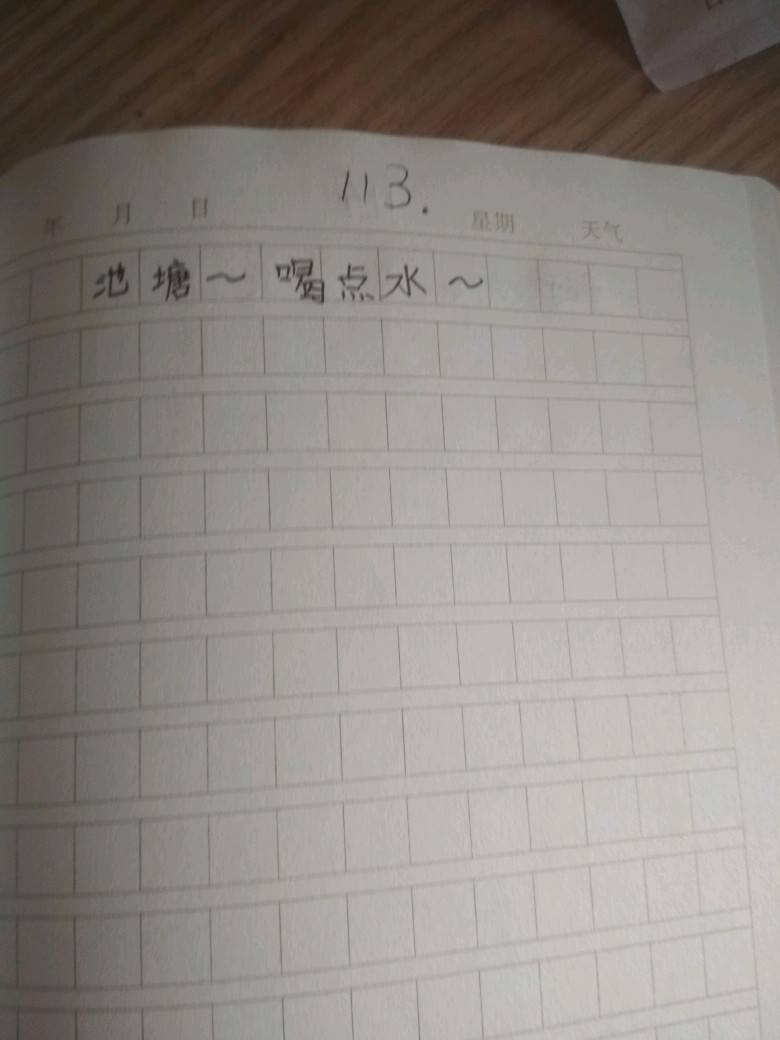 113.
年 月 日 星期 天气
池塘～喝点水～